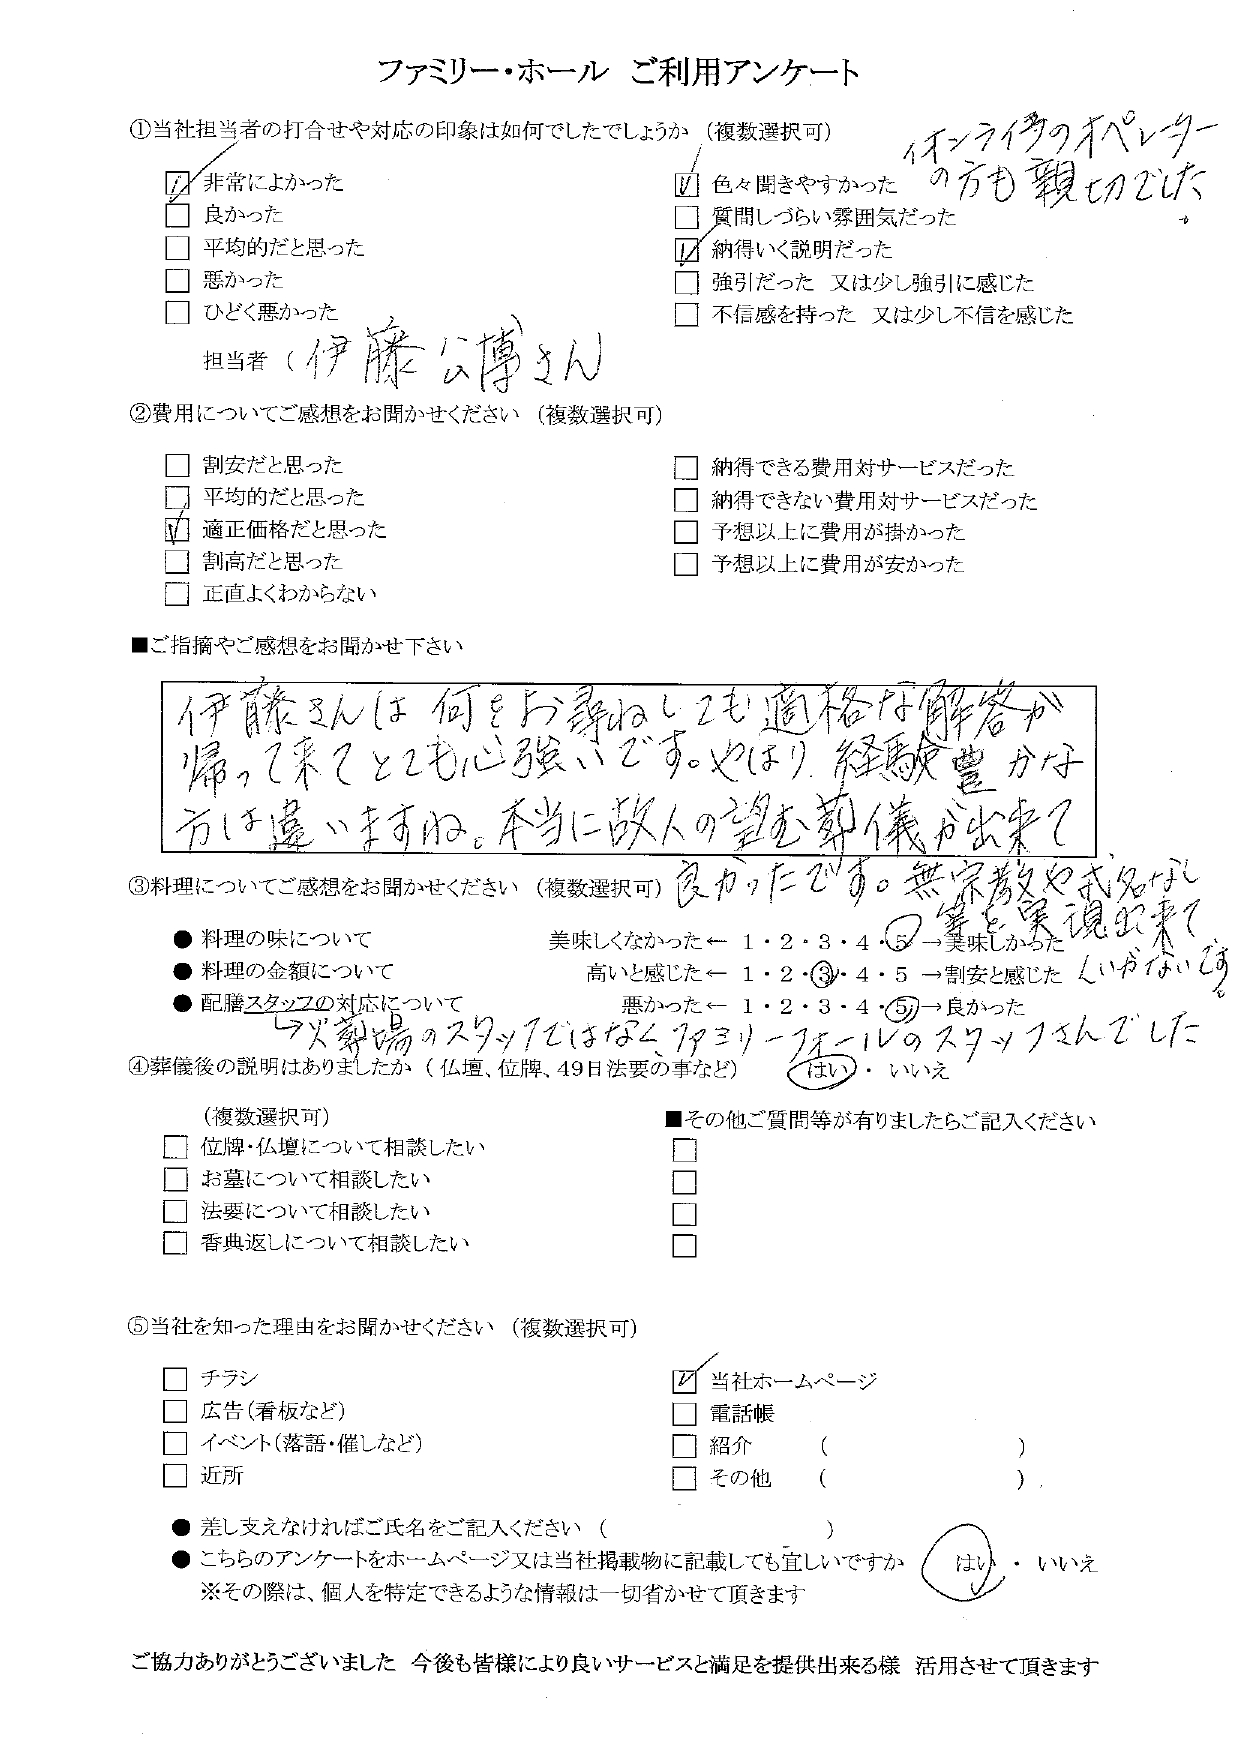 ファミリー・ホール ご利用アンケート
①当社担当者の打合せや対応の印象は如何でしたでしょうか (複数選択可)
イオンライフのオペレーター
の方も親切でした。
☑ 非常によかった ☑ 色々聞きやすかった
□ 良かった □ 質問しづらい雰囲気だった
□ 平均的だと思った ☑ 納得いく説明だった
□ 悪かった □ 強引だった 又は少し強引に感じた
□ ひどく悪かった □ 不信感を持った 又は少し不信を感じた
担当者 ( 伊藤公博さん )
②費用についてご感想をお聞かせください (複数選択可)
□ 割安だと思った □ 納得できる費用対サービスだった
□ 平均的だと思った □ 納得できない費用対サービスだった
☑ 適正価格だと思った □ 予想以上に費用が掛かった
□ 割高だと思った □ 予想以上に費用が安かった
□ 正直よくわからない
■ご指摘やご感想をお聞かせ下さい
伊藤さんは何をお尋ねしても適格な解答が
帰って来てとても心強いです。やはり経験豊かな
方は違いますね。本当に故人の望む葬儀が出来て
良かったです。無宗教や戒名なし
等を実現出来て
くいがないです。
③料理についてご感想をお聞かせください (複数選択可)
● 料理の味について 美味しくなかった← 1・2・3・4・5 →美味しかった
● 料理の金額について 高いと感じた← 1・2・3・4・5 →割安と感じた
● 配膳スタッフの対応について 悪かった← 1・2・3・4・5 →良かった
↳火葬場のスタッフではなく、ファミリーフォールのスタッフさんでした
④葬儀後の説明はありましたか (仏壇、位牌、49日法要の事など) はい ・ いいえ
(複数選択可) ■その他ご質問等が有りましたらご記入ください
□ 位牌・仏壇について相談したい □
□ お墓について相談したい □
□ 法要について相談したい □
□ 香典返しについて相談したい □
⑤当社を知った理由をお聞かせください (複数選択可)
□ チラシ ☑ 当社ホームページ
□ 広告(看板など) □ 電話帳
□ イベント(落語・催しなど) □ 紹介 ( )
□ 近所 □ その他 ( )
● 差し支えなければご氏名をご記入ください ( )
● こちらのアンケートをホームページ又は当社掲載物に記載しても宜しいですか はい ・ いいえ
※その際は、個人を特定できるような情報は一切省かせて頂きます
ご協力ありがとうございました 今後も皆様により良いサービスと満足を提供出来る様 活用させて頂きます